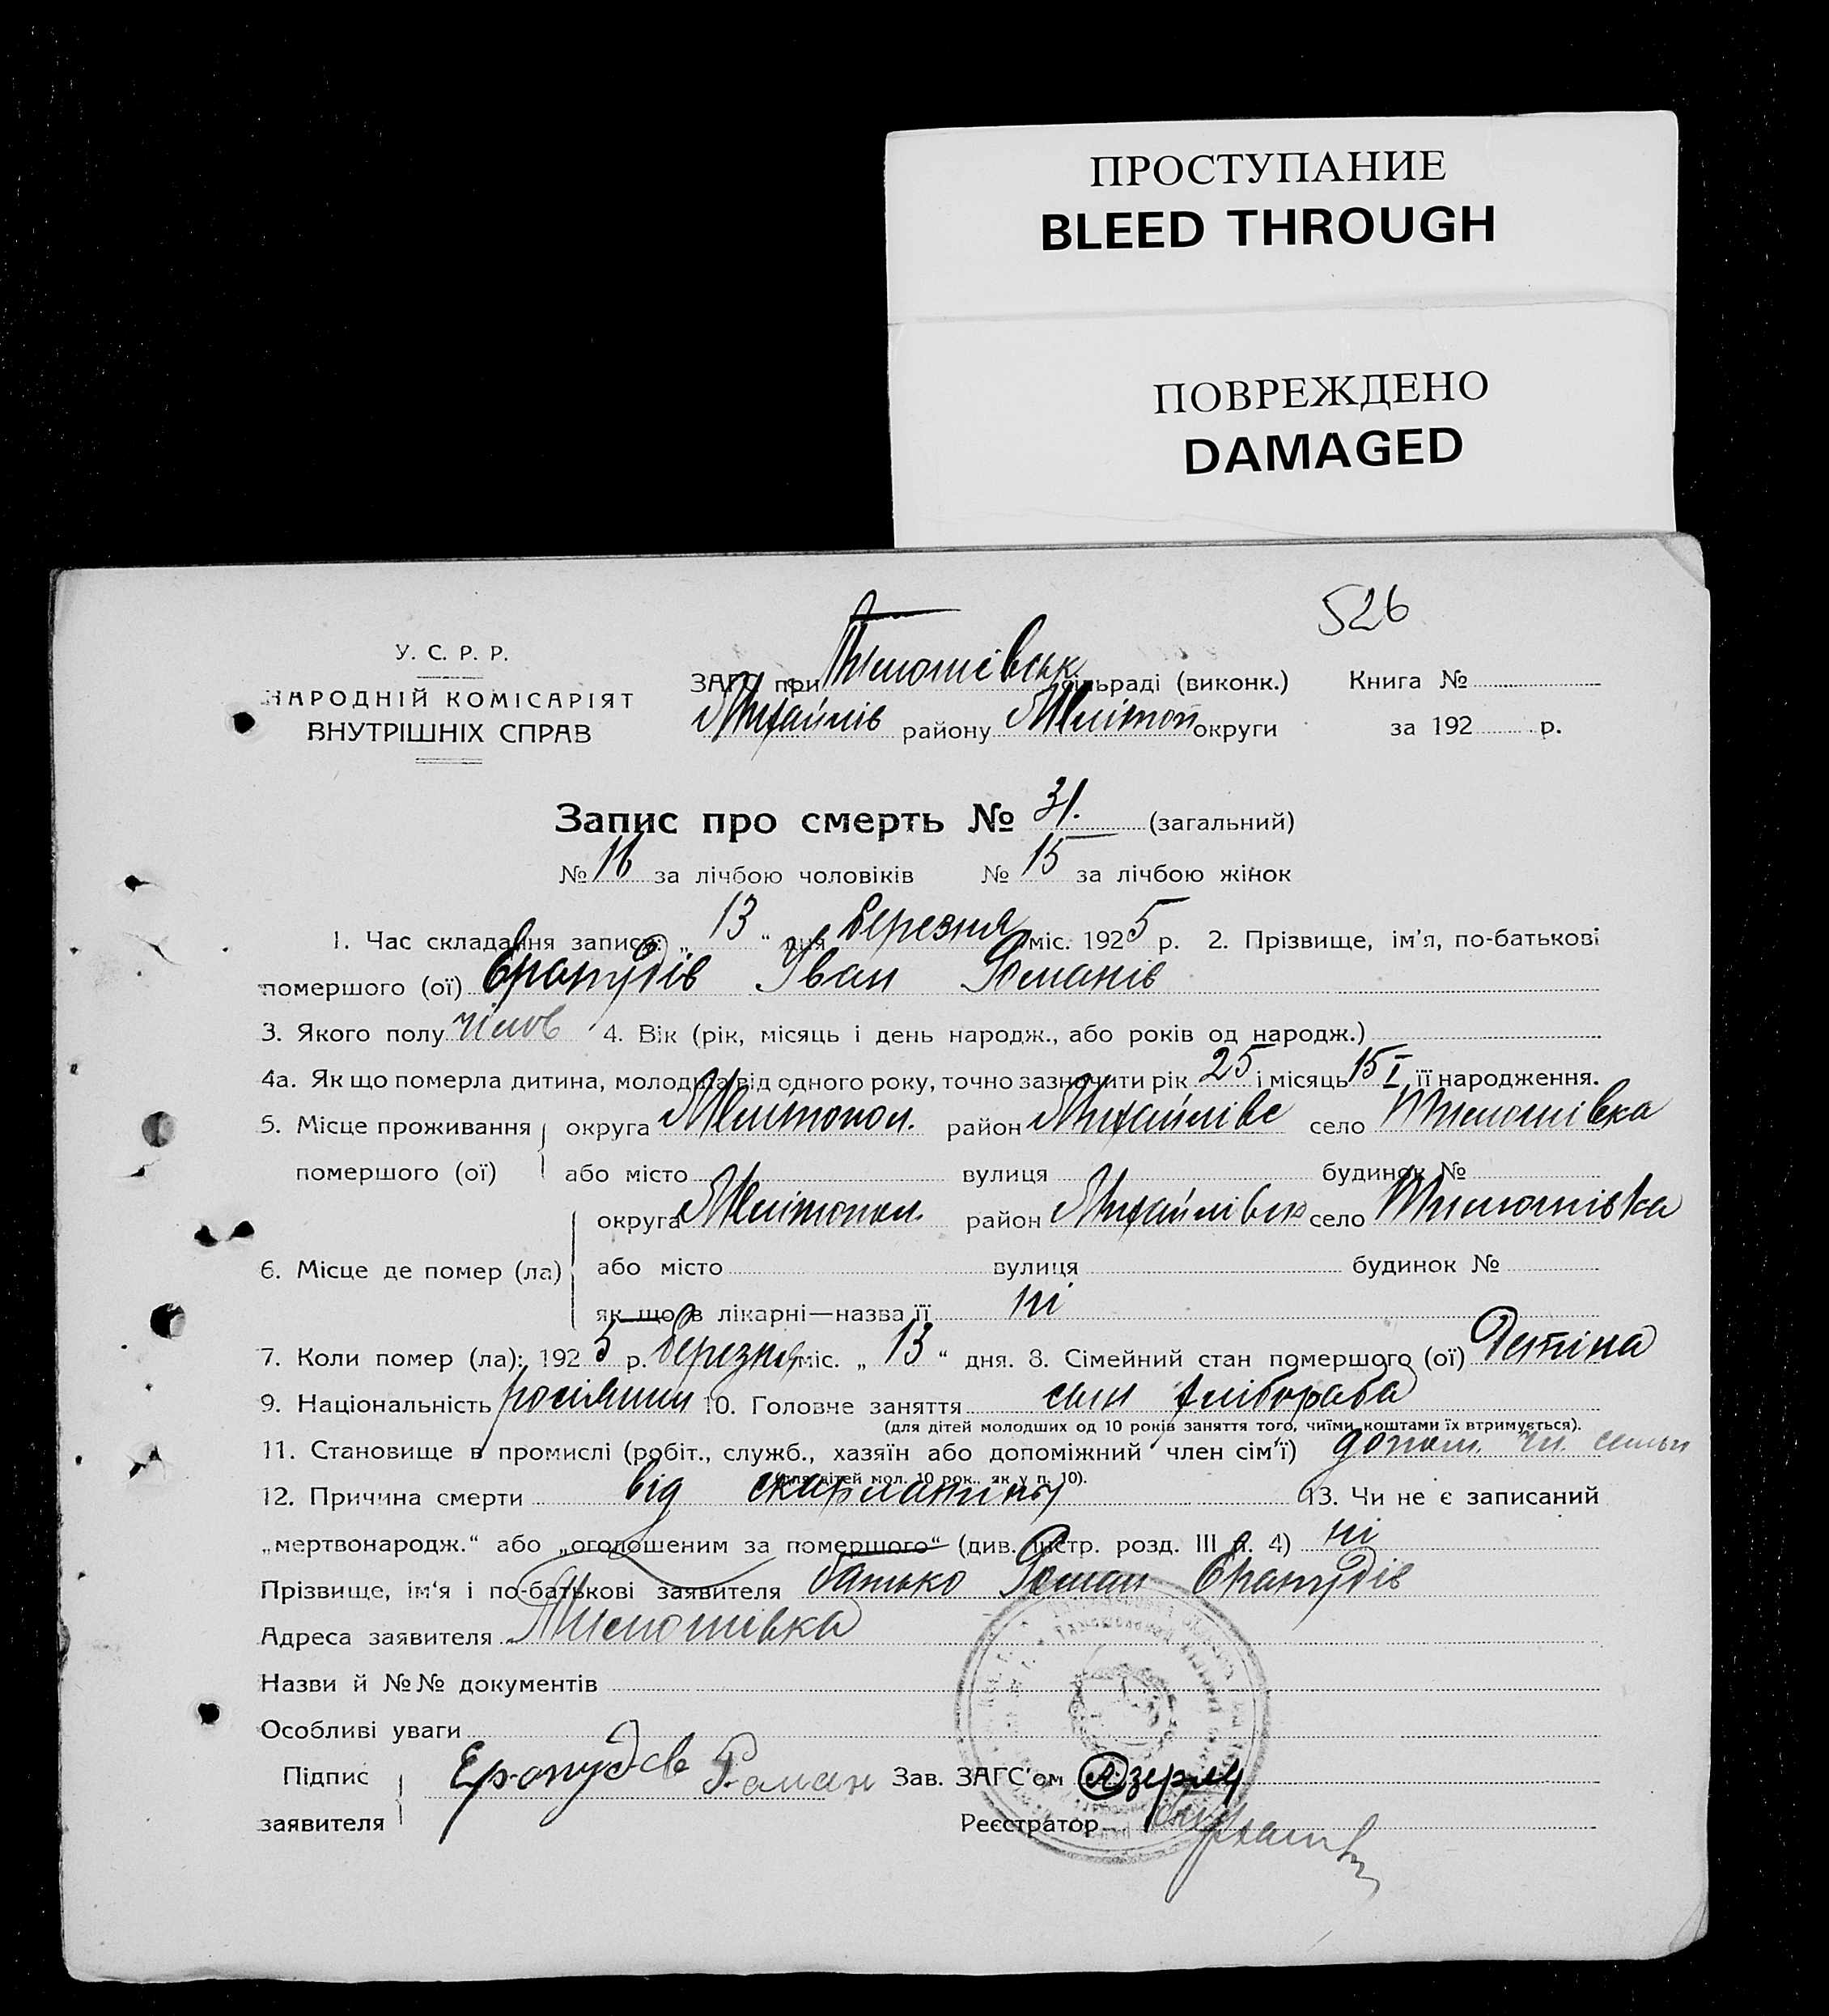 ПРОСТУПАНИЕ
BLEED THROUGH
ПОВРЕЖДЕНО
DAMAGED
526
У. С. Р. Р.
НАРОДНІЙ КОМІСАРІЯТ
ВНУТРІШНІХ СПРАВ
ЗАГС при Тимошівськ. сільраді (виконк.) Книга №
Михайлів району Мелітоп округи за 192 р.
Запис про смерть № 31. (загальний)
№ 16 за лічбою чоловіків № 15 за лічбою жінок
1. Час складання запису: „ 13 “ дня березня міс. 1925 р. 2. Прізвище, ім’я, по-батькові
помершого (ої) Іван Романів
3. Якого полу чолов 4. Вік (рік, місяць і день народж., або років од народж.)
4а. Як що померла дитина, молодша від одного року, точно зазначити рік 25 і місяць 15 I її народження.
5. Місце проживання округа Мелітопол. район Михайлівс село Тимошівка
помершого (ої) або місто вулиця будинок №
округа Мелітопол. район Михайлівск село Тимошівка
6. Місце де помер (ла) або місто вулиця будинок №
як що в лікарні—назва її ні
7. Коли помер (ла): 1925 р. березня міс. „ 13 “ дня. 8. Сімейний стан помершого (ої) Детіна
9. Національність росіянин 10. Головне заняття син хлібороба
(для дітей молодших од 10 років заняття того, чиїми коштами їх втримується).
11. Становище в промислі (робіт., служб., хазяїн або допоміжний член сім’ї) допом. чл. семьи
(для дітей мол. 10 рок., як у п. 10).
12. Причина смерти від скарлатіни 13. Чи не є записаний
„мертвонародж.“ або „оголошеним за помершого“ (див. інстр. розд. III п. 4) ні
Прізвище, ім’я і по-батькові заявителя батько Роман
Адреса заявителя Тимошівка
Назви й №№ документів
Особливі уваги
Підпис Роман Зав. ЗАГС’ом
заявителя Реєстратор